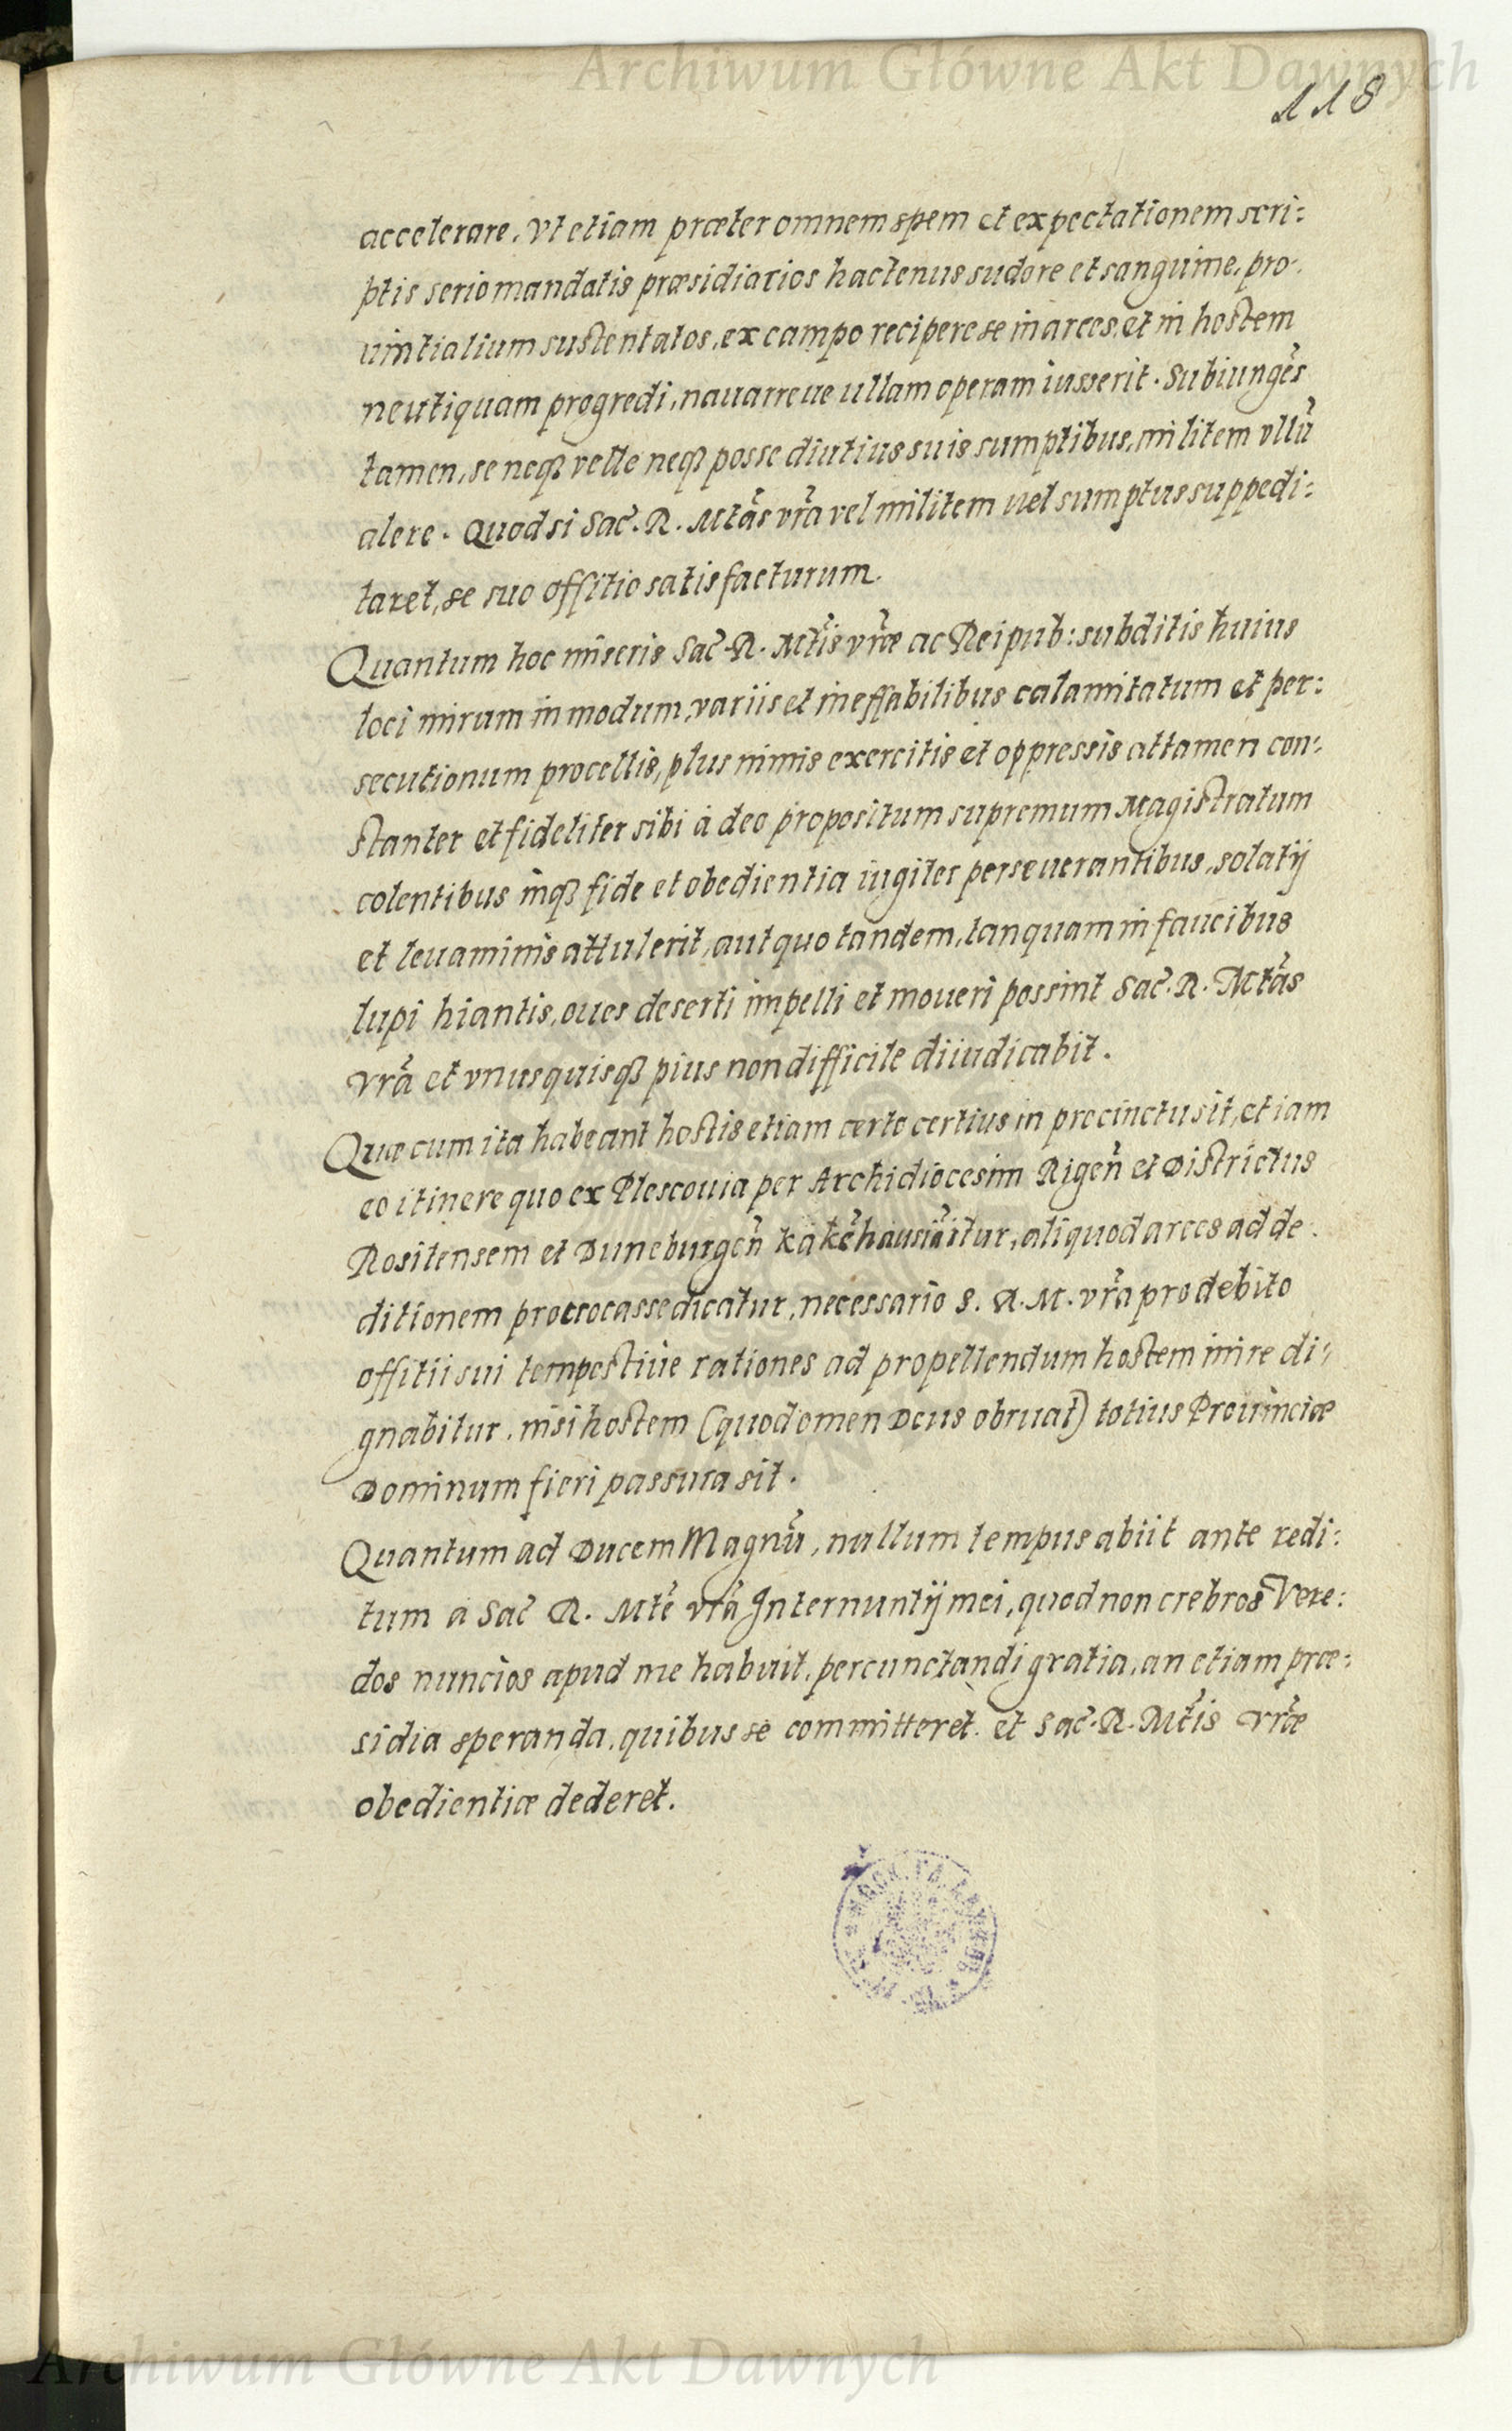 Archiwum Główne Akt Dawnych
118
accelerare. Vt etiam præter omnem spem et expectationem scri:
ptis serio mandatis præsidiarios hactenus sudore et sanguine. pro:
uintialium sustentatos, ex campo recipere se in arces. et in hostem
neutiquam progredi, nauarreue ullam operam iusserit. Subiungẽs
tamen, se neqȝ velle neqȝ posse diutius suis sumptibus, militem vllũ
alere. Quod si Sac̃. R. Mtãs vrã vel militem uel sumptus suppedi:
taret, se suo offitio satisfacturum.
Quantum hoc miseris Sac̃. R. Mt̃is vr̃æ ac Reipub: subditis huius
loci mirum in modum, variis et ineffabilibus calamitatum et per:
secutionum procellis, plus nimis exercitis et oppressis attamen con:
stanter et fideliter sibi à deo propositum supremum Magistratum
colentibus inqȝ fide et obedientia iugiter perseuerantibus, solatij
et leuaminis attulerit, aut quo tandem, tanquam in faucibus
lupi hiantis, oues deserti impelli et moueri possint Sac̃. R. Mtãs
vrã et vnusquisqȝ pius non difficile diiudicabit.
Quæ cum ita habeant hostis etiam certo certius in procinctu sit, etiam
eo itinere quo ex Plescouia per Archidiocesim Rigeñ et Districtus
Rositensem et Duneburgeñ itur, aliquod arces ad de:
ditionem prouocasse dicatur, necessario S. R. M. vrã pro debito
offitii sui tempestiue rationes ad propellendum hostem inire di:
gnabitur, nisi hostem (quod omen Deus obruat) totius Prouinciæ
Dominum fieri passura sit.
Quantum ad Ducem Magnũ, nullum tempus abiit ante redi:
tum à Sac̃ R. Mtẽ vrã Internuntij mei, quod non crebros Vere:
dos nuncios apud me habuit, percunctandi gratia, an etiam præ:
sidia speranda, quibus se committeret. et Sac̃. R. Mt̃is vr̃æ
obedientiæ dederet.
Archiwum Główne Akt Dawnych